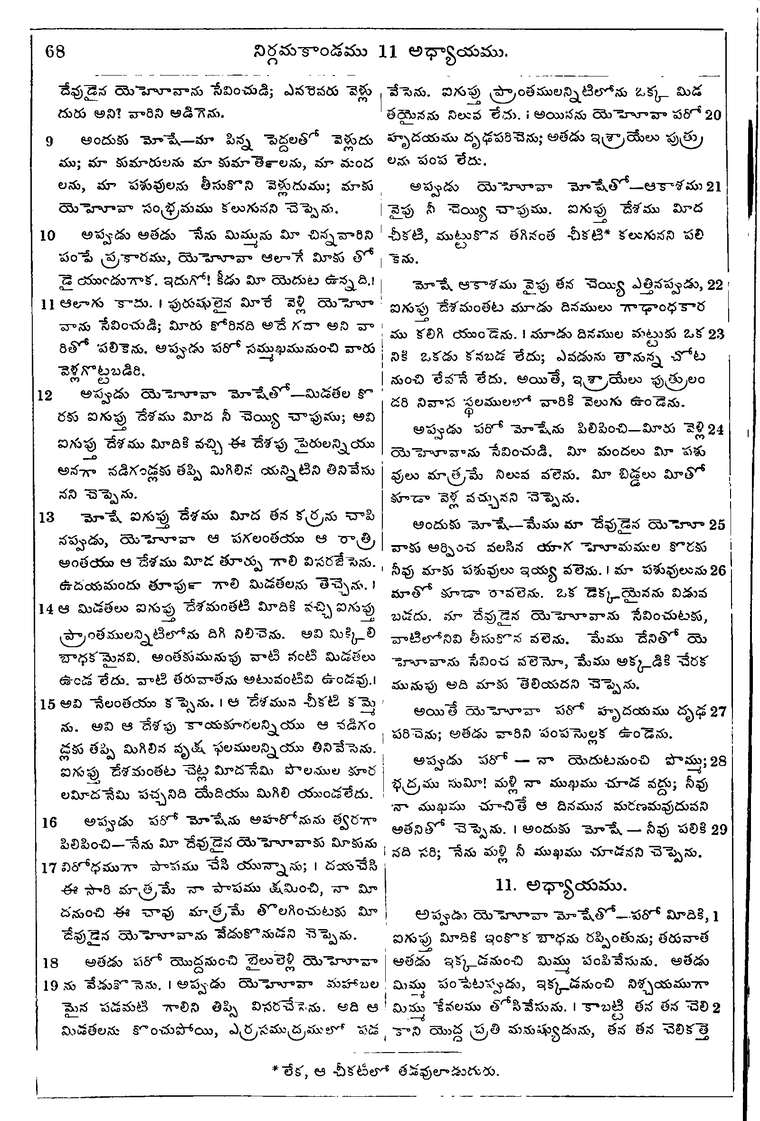 68 నిర్గమకాండము 11 అధ్యాయము.
దేవుడైన యెహోవాను సేవించుడి; ఎవరెవరు వెళ్లు
దురు అని? వారిని అడిగెను.
9 అందుకు మోషే—మా పిన్న పెద్దలతో వెళ్లుదు
ము; మా కుమారులను మా కుమార్తెలను, మా మంద
లను, మా పశువులను తీసుకొని వెళ్లుదుము; మాకు
యెహోవా సంభ్రమము కలుగునని చెప్పెను.
10 అప్పుడు అతడు నేను మిమ్మును మీ చిన్నవారిని
పంపే ప్రకారము, యెహోవా ఆలాగే మీకు తో
డై యుండుగాక. ఇదుగో! కీడు మీ యెదుట ఉన్నది.।
11 ఆలాగు కాదు. । పురుషులైన మీరే వెళ్లి యెహో
వాను సేవించుడి; మీరు కోరినది అదే గదా అని వా
రితో పలికెను. అప్పుడు పరో సమ్ముఖమునుంచి వారు
వెళ్లగొట్టబడిరి.
12 అప్పుడు యెహోవా మోషేతో—మిడతల కొ
రకు ఐగుప్తు దేశము మీద నీ చెయ్యి చాపుము; అవి
ఐగుప్తు దేశము మీదికి వచ్చి ఈ దేశపు పైరులన్నియు
అనగా వడిగండ్లకు తప్పి మిగిలిన యన్నిటిని తినివేసు
నని చెప్పెను.
13 మోషే ఐగుప్తు దేశము మీద తన కర్రను చాపి
నప్పుడు, యెహోవా ఆ పగలంతయు ఆ రాత్రి
అంతయు ఆ దేశము మీద తూర్పు గాలి విసరజేసెను.
ఉదయమందు తూర్పు గాలి మిడతలను తెచ్చెను. ।
14 ఆ మిడతలు ఐగుప్తు దేశమంతటి మీదికి వచ్చి ఐగుప్తు
ప్రాంతములన్నిటిలోను దిగి నిలిచెను. అవి మిక్కిలి
బాధకమైనవి. అంతకుమునుపు వాటి వంటి మిడతలు
ఉండ లేదు. వాటి తరువాతను అటువంటివి ఉండవు.।
15 అవి నేలంతయు కప్పెను. । ఆ దేశమున చీకటి కమ్మె
ను. అవి ఆ దేశపు కాయకూరలన్నియు ఆ వడిగం
డ్లకు తప్పి మిగిలిన వృక్ష ఫలములన్నియు తినివేసెను.
ఐగుప్తు దేశమంతట చెట్ల మీదనేమి పొలముల కూర
లమీదనేమి పచ్చనిది యేదియు మిగిలి యుండలేదు.
16 అప్పుడు పరో మోషేను అహరోనును త్వరగా
పిలిపించి—నేను మీ దేవుడైన యెహోవాకు మీకును
17 విరోధముగా పాపము చేసి యున్నాను; । దయచేసి
ఈ సారి మాత్రమే నా పాపము క్షమించి, నా మీ
దనుంచి ఈ చావు మాత్రమే తొలగించుటకు మీ
దేవుడైన యెహోవాను వేడుకొనుడని చెప్పెను.
18 అతడు పరో యొద్దనుంచి బైలువెళ్లి యెహోవా
19 ను వేడుకొనెను. । అప్పుడు యెహోవా మహాబల
మైన పడమటి గాలిని తిప్పి విసరచేసెను. అది ఆ
మిడతలను కొంచుపోయి, ఎర్రసముద్రములో పడ
వేసెను. ఐగుప్తు ప్రాంతములన్నిటిలోను ఒక్క మిడ
తయైనను నిలువ లేదు. । అయినను యెహోవా పరో 20
హృదయము దృఢపరిచెను; అతడు ఇశ్రాయేలు పుత్రు
లను పంప లేదు.
అప్పుడు యెహోవా మోషేతో—ఆకాశము 21
వైపు నీ చెయ్యి చాపుము. ఐగుప్తు దేశము మీద
చీకటి, ముట్టుకొన తగినంత చీకటి* కలుగునని పలి
కెను.
మోషే ఆకాశము వైపు తన చెయ్యి ఎత్తినప్పుడు, 22
ఐగుప్తు దేశమంతట మూడు దినములు గాఢాంధకార
ము కలిగి యుండెను. । మూడు దినముల మట్టుకు ఒక 23
నికి ఒకడు కనబడ లేదు; ఎవడును తానున్న చోట
నుంచి లేవనే లేదు. అయితే, ఇశ్రాయేలు పుత్రులం
దరి నివాస స్థలములలో వారికి వెలుగు ఉండెను.
అప్పుడు పరో మోషేను పిలిపించి—మీరు వెళ్లి 24
యెహోవాను సేవించుడి. మీ మందలు మీ పశు
వులు మాత్రమే నిలువ వలెను. మీ బిడ్డలు మీతో
కూడా వెళ్ల వచ్చునని చెప్పెను.
అందుకు మోషే—మేము మా దేవుడైన యెహో 25
వాకు అర్పించ వలసిన యాగ హోమముల కొరకు
నీవు మాకు పశువులు ఇయ్య వలెను. । మా పశువులును 26
మాతో కూడా రావలెను. ఒక డెక్కయైనను విడువ
బడదు. మా దేవుడైన యెహోవాను సేవించుటకు,
వాటిలోనివి తీసుకొన వలెను. మేము దేనితో యె
హోవాను సేవించ వలెనో, మేము అక్కడికి చేరక
మునుపు అది మాకు తెలియదని చెప్పెను.
అయితే యెహోవా పరో హృదయము దృఢ 27
పరిచెను; అతడు వారిని పంపనొల్లక ఉండెను.
అప్పుడు పరో — నా యెదుటనుంచి పొమ్ము; 28
భద్రము సుమీ! మళ్లి నా ముఖము చూడ వద్దు; నీవు
నా ముఖము చూచితే ఆ దినమున మరణమవుదువని
అతనితో చెప్పెను. । అందుకు మోషే — నీవు పలికి 29
నది సరి; నేను మళ్లి నీ ముఖము చూడనని చెప్పెను.
11. అధ్యాయము.
అప్పుడు యెహోవా మోషేతో—పరో మీదికి, 1
ఐగుప్తు మీదికి ఇంకొక బాధను రప్పింతును; తరువాత
అతడు ఇక్కడనుంచి మిమ్ము పంపివేసును. అతడు
మిమ్ము పంపేటప్పుడు, ఇక్కడనుంచి నిశ్చయముగా
మిమ్ము కేవలము తోసివేసును. । కాబట్టి తన తన చెలి 2
కాని యొద్ద ప్రతి మనుష్యుడును, తన తన చెలికత్తె
* లేక, ఆ చీకటిలో తడవులాడుదురు.